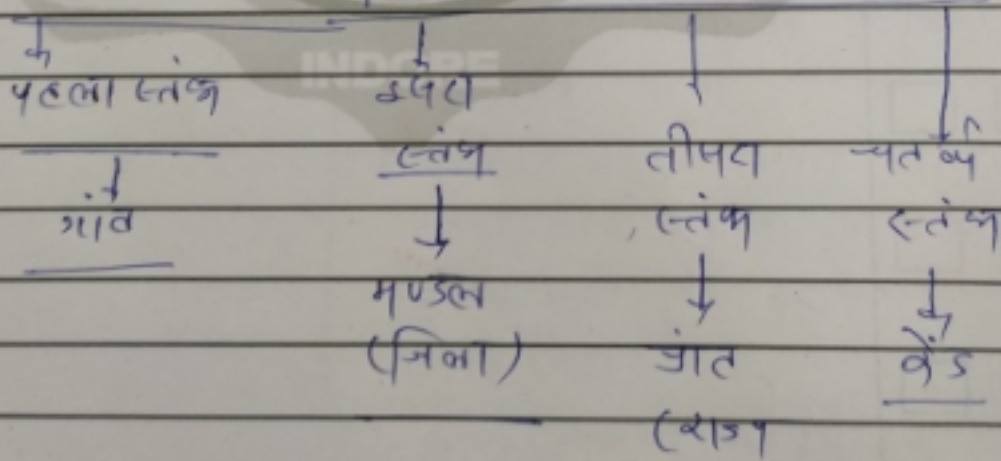 INDORE
पहला स्तंभ
↓
गांव
दूसरा
स्तंभ
↓
मण्डल
(जिला)
तीसरा
स्तंभ
↓
प्रांत
(राज्य
चतुर्थ
स्तंभ
↓
केंद्र